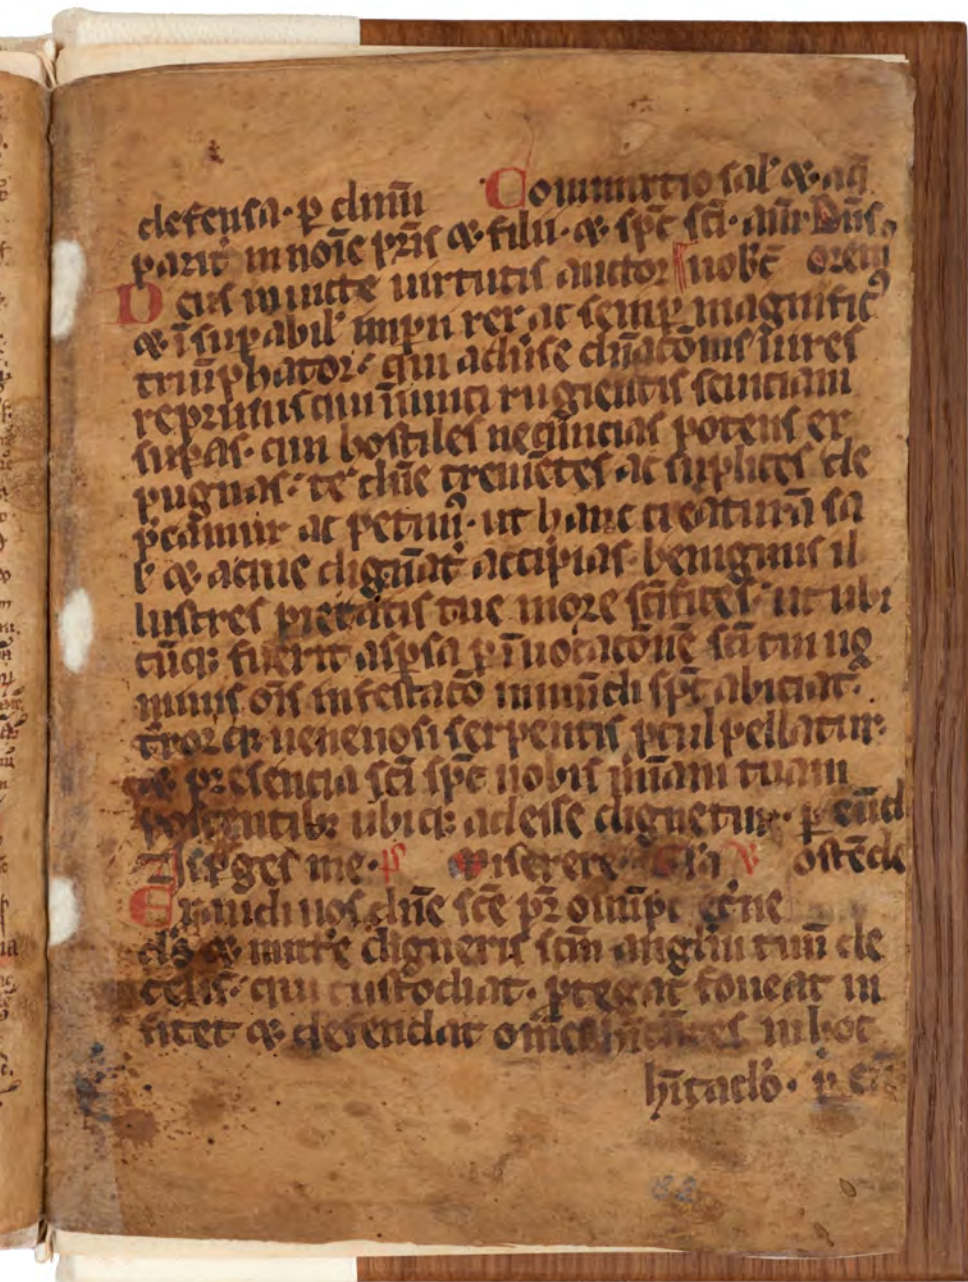 defensa· ꝑ dm̄u Commixtio sal᷒ ⁊ aq̄
pariť in noīe pr̄is ⁊ filii· ⁊ · sp̄c sc̄i· am̄· Dn̄s
Deus inuicte uirtutis auctor uobc̄ Orem̄
⁊ īsuꝑabil᷒ imꝑii rex ac semꝑ magnific᷒
triūphator· qui adu̓se dn̄acōnis uires
reprimis qui inimici rugientis seuiciam
suꝑas· qui hostiles neqͥncias potens ex
pugnas· te dn̄e tremētes ac suplices de
p̄camur ac petim᷒· ut hanc creaturā sa
l᷒ ⁊ aque dignāť accipias· benignus il
lustres pietatis tue more sc̄ifices· ut ubi
cūqꝫ fuerit asꝑsa ꝑ īuocacōnē sc̄i tui no
minis om̄s infestac̄o inmūdi sp̄c abiciať·
t̄rorqꝫ uenenosi serpentis ꝓcul pellatur·
⁊ presencia sc̄i sp̄c nobis mīam tuam
poscentibꝫ ubiqꝫ adesse dignetur· ꝑ eūd
Asꝑges me· ps̄ Miserere· Gl̓ia V Ostēde
Exaudi nos dn̄e sc̄e pr̄ om̄ipͦ et̓ne
ds̄ ⁊ mitt̓e digneris sc̄m angl̄m tuū de
celis· qui custodiat· ꝓtegat foueat ui
sitet ⁊ defendat om̄es hītātes in hoc
hītaclo· ꝑ